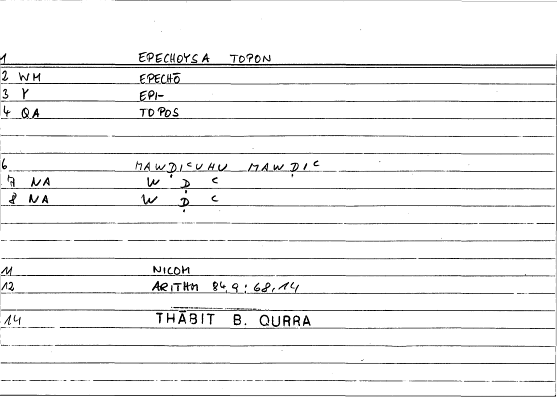 1 EPECHOYSA TOPON
2 WM EPECHŌ
3 Y EPI-
4 QA TOPOS
6 MAWḌIᶜUHU MAWḌIᶜ
7 NA W Ḍ ᶜ
8 NA W Ḍ ᶜ
11 NICOM
12 ARITHM 84,9 : 68,14
14 THĀBIT B. QURRA